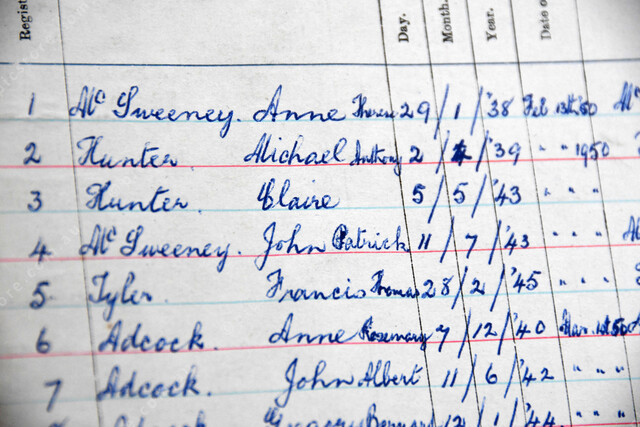 Regist Day. Month. Year. Date o
1 Mc Sweeney. Anne Therese 29 / 1 / '38 Feb 13th '50 Mc
2 Hunter. Michael Anthony 2 / 4 / '39 " " 1950
3 Hunter. Claire 5 / 5 / '43 " " "
4 Mc Sweeney. John Patrick 11 / 7 / '43 " " "
5 Tyler. Francis Thomas 28 / 2 / '45 " " "
6 Adcock. Anne Rosemary 7 / 12 / '40 Mar. 1st 50
7 Adcock. John Albert 11 / 6 / '42 " " "
Adcock Gregory Bernard 12 / 1 / '44. " " "